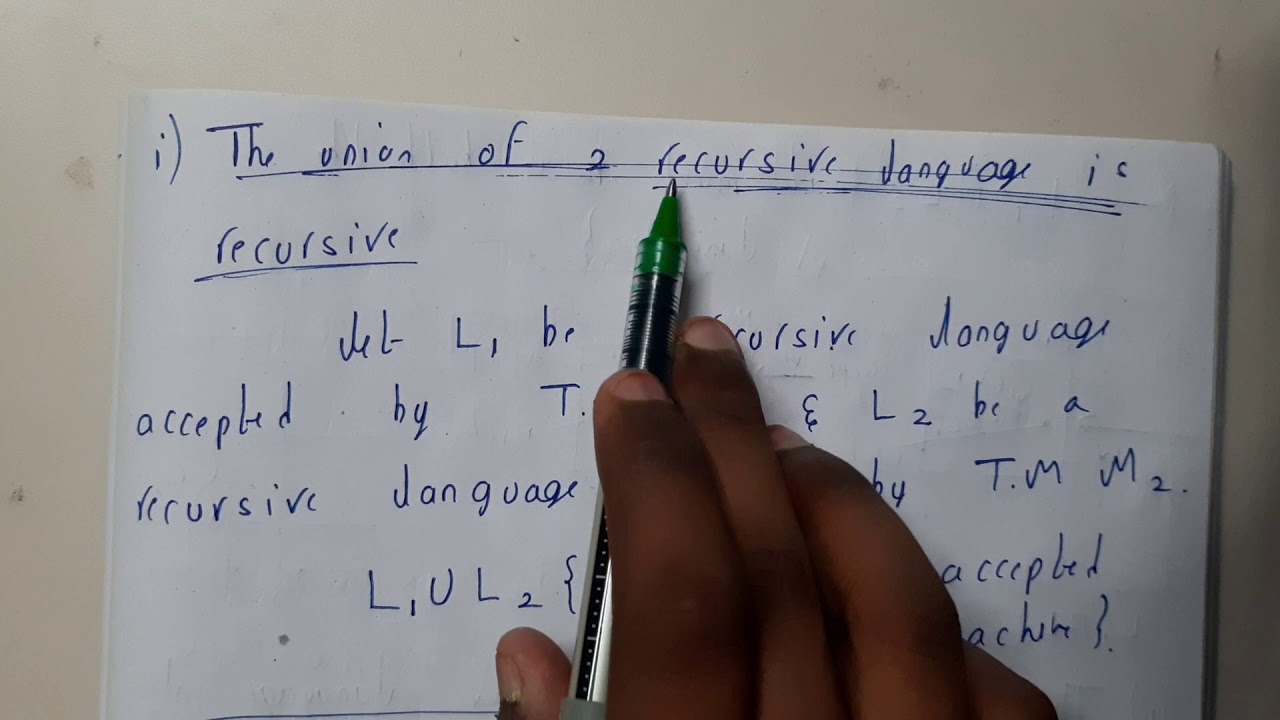 i) The union of 2 recursive language is
recursive
Let L₁ be language
accepted by T. & L₂ be a
recursive language by T.M M₂.
L₁ U L₂ { accepted
}.